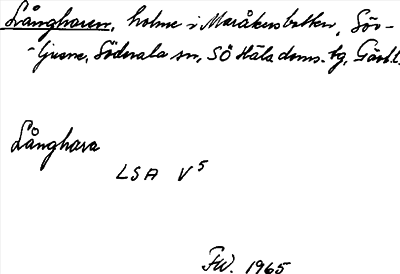 Långharen, holme i Maråkersbotten, Sör-
-ljusne, Söderala sn, SÖ Hälsa doms. bg, Gävl.l.
Långhara
LSA V5
FW. 1965